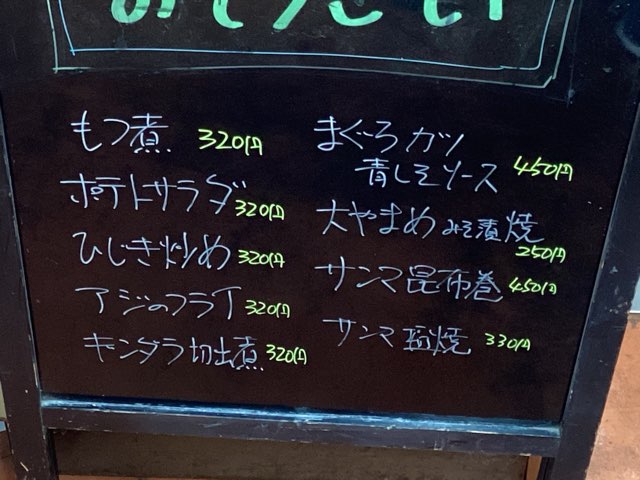 もつ煮 320円
ポテトサラダ 320円
ひじき炒め 320円
アジのフライ 320円
ギンダラ切出煮 320円
まぐろカツ
青しそソース 450円
大やまめみそ漬焼
250円
サンマ昆布巻 450円
サンマ塩焼 330円